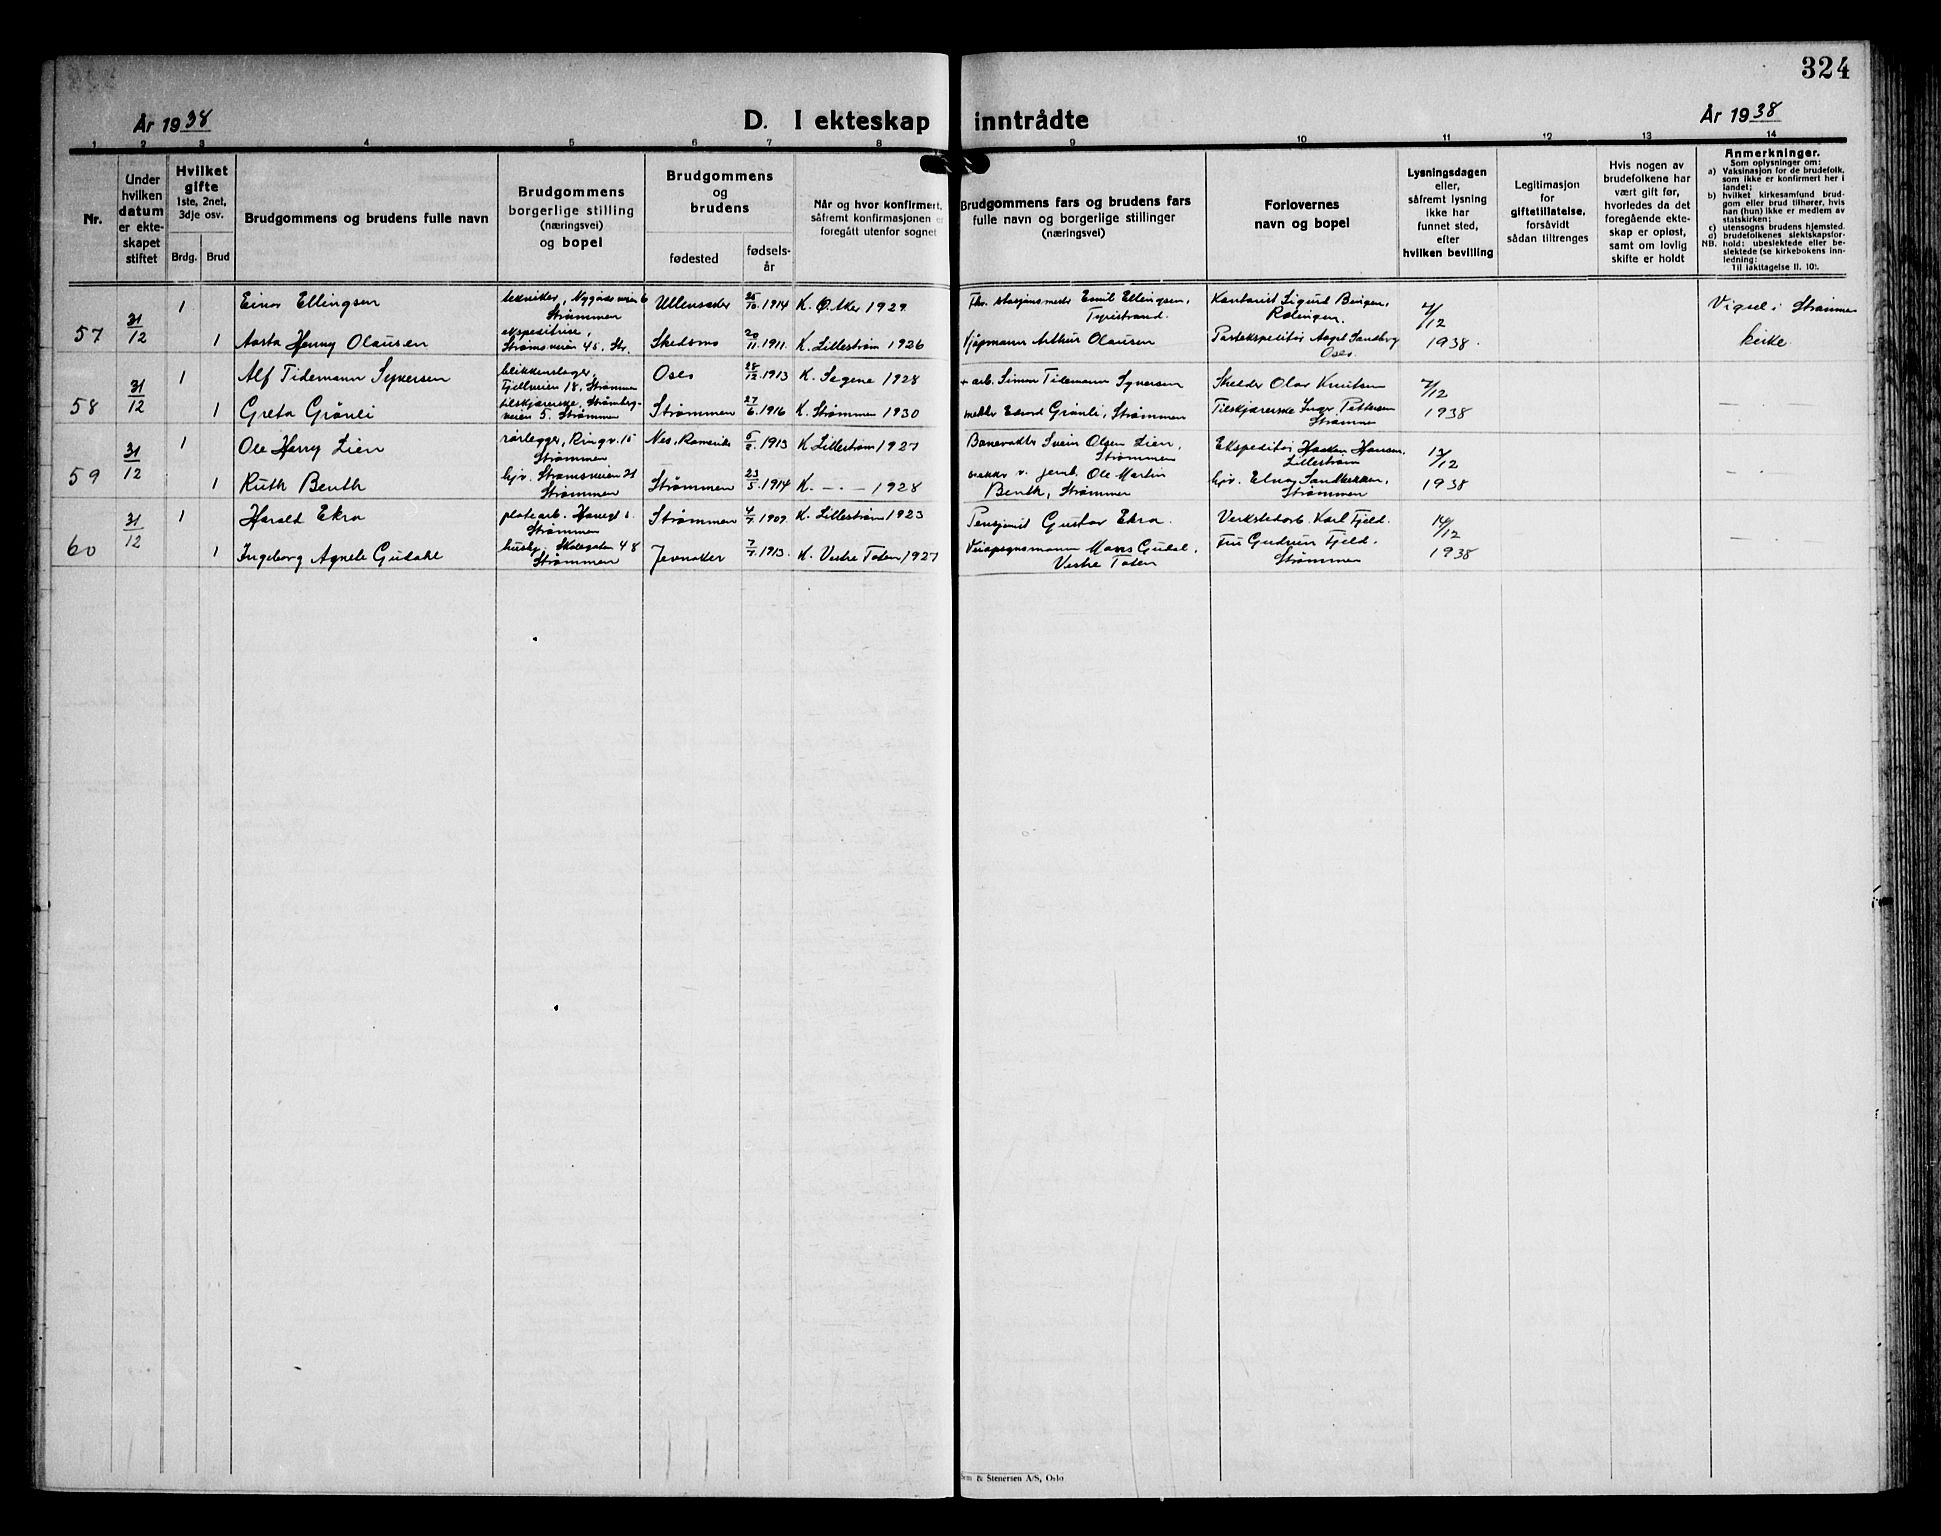 324
År 1938
D. I ekteskap inntrådte
År 1938
1 2 3 4 5 6 7 8 9 10 11 12 13 14
Nr.
Under
hvilken
datum
er ekte-
skapet
stiftet
Hvilket
gifte
1ste, 2net,
3dje osv.
Brdg. Brud
Brudgommens og brudens fulle navn
Brudgommens
borgerlige stilling
(næringsvei)
og bopel
Brudgommens
og
brudens
fødested
fødsels-
år
Når og hvor konfirmert,
såfremt konfirmasjonen er
foregått utenfor sognet
Brudgommens fars og brudens fars
fulle navn og borgerlige stillinger
(næringsvei)
Forlovernes
navn og bopel
Lysningsdagen
eller,
såfremt lysning
ikke har
funnet sted,
efter
hvilken bevilling
Legitimasjon
for
giftetillatelse,
forsåvidt
sådan tiltrenges
Hvis nogen av
brudefolkene har
vært gift før,
hvorledes da det
foregående ekte-
skap er opløst,
samt om lovlig
skifte er holdt
Anmerkninger.
Som oplysninger om:
a) Vaksinasjon for de brudefolk,
som ikke er konfirmert her i
landet;
b) hvilket kirkesamfund brud-
gom eller brud tilhører, hvis
han (hun) ikke er medlem av
statskirken;
c) utensogns brudens hjemsted.
d) brudefolkenes slektskapsfor-
NB. hold: ubeslektede eller be-
slektede (se kirkebokens inn-
ledning:
Til iakttagelse II. 10).
57 31/12
1 Einar Ellingsen
tekniker, Nygårdsveien 6
Strømmen
Ullensaker 25/10 1914 K. Ø. Aker 1929
Fhv. stasjonsmester Emil Ellingsen,
Tyristrand.
Kontorist Sigurd Bingen,
Rælingen.
7/12
1938.
Vigsel i Strømmen
kirke
1 Aasta Henny Olausen
ekspeditrise,
Strømsveien 45, Str.
Skedsmo 20/11 1911 K. Lillestrøm 1926
Kjøpmann Arthur Olausen
Postekspeditør Aage Sandberg
Oslo.
58 31/12
1 Alf Tidemann Syversen
blikkenslager,
Fjellveien 18, Strømmen
Oslo 28/12 1913 K. Sagene 1928
+ arb. Simon Tidemann Syversen
Skredder Olav Knutsen
7/12
1938
1 Greta Grønli
tilskjærerske, Strømbg-
veien 5. Strømmen
Strømmen 27/6 1916 K. Strømmen 1930
mekkr Edvard Grønli, Strømmen
Tilskjærerske Inger Pettersen
Strømmen
—
59 31/12
1 Ole Harry Lien
rørlegger, Ringv. 15
Strømmen
Nes, Romerike 1913 K Lillestrøm 1927
Banevokter Svein Olsen Lien,
Strømmen
Ekspeditør Haakon Hansen,
Lillestrøm
12/12
1938
1 Ruth Benth
hjv. Strømsveien 21
Strømmen
Strømmen 23/5 1914 K. — " — 1928
v. jernb. Ole Martin
Benth, Strømmen
hjv. Elna Sandbekken,
Strømmen
— " —
60 31/12
1 Harald Ekra
platearb.
Strømmen
Strømmen 4/7 1909 K. Lillestrøm 1923
Pensjonist Gustav Ekra.
Verkstedarb. Karl Fjeld.
14/12
1938
1 Ingeborg Agnete Gudahl
husbg. Skolegaten 48
Strømmen
Jevnaker 7/7 1913. K. Vestre Toten 1927
Veiopsynsmann Mons Gudal,
Vestre Toten
Fru Gudrun Fjeld.
Strømmen
— " —
Sem & Stenersen A/S, Oslo